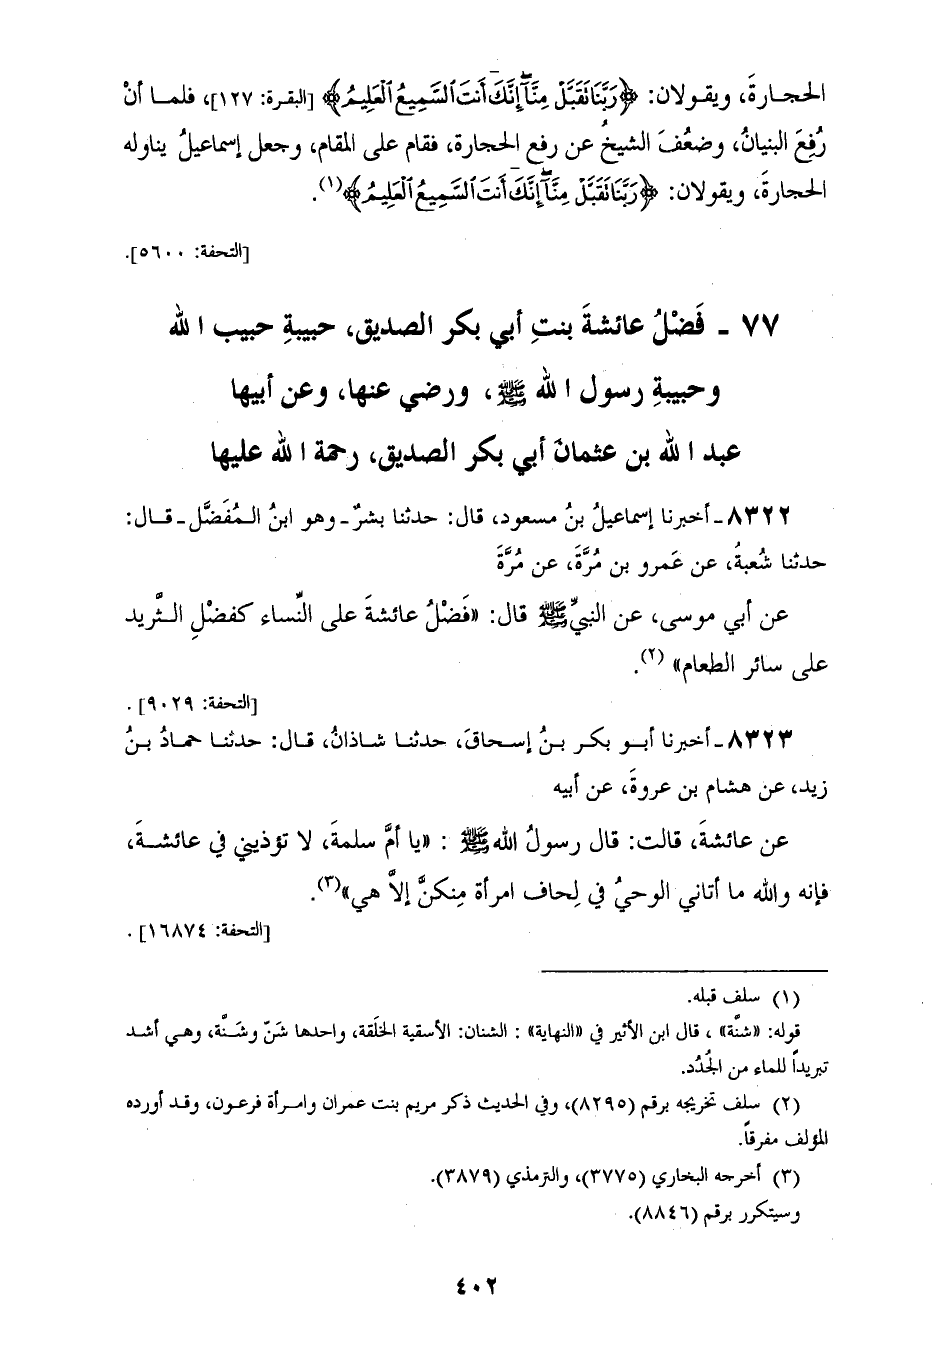 الحجارةَ، ويقولان: ﴿رَبَّنَا تَقَبَّلْ مِنَّآ إِنَّكَ أَنتَ ٱلسَّمِيعُ ٱلْعَلِيمُ﴾ [البقرة: ١٢٧]، فلما أنْ
رُفِعَ البنيانُ، وضعُفَ الشيخُ عن رفع الحجارة، فقام على المقام، وجعل إسماعيلُ يناوله
الحجارةَ، ويقولان: ﴿رَبَّنَا تَقَبَّلْ مِنَّآ إِنَّكَ أَنتَ ٱلسَّمِيعُ ٱلْعَلِيمُ﴾(١).
[التحفة: ٥٦٠٠].
٧٧ - فَضْلُ عائشةَ بنتِ أبي بكر الصديق، حبيبةِ حبيب الله
وحبيبةِ رسول الله ﷺ، ورضي عنها، وعن أبيها
عبد الله بن عثمان أبي بكر الصديق، رحمة الله عليها
٨٣٢٢ـ أخبرنا إسماعيلُ بنُ مسعود، قال: حدثنا بشرٌ ـ وهو ابنُ المُفَضَّل ـ قال:
حدثنا شُعبةُ، عن عَمرو بن مُرَّةَ، عن مُرَّةَ
عن أبي موسى، عن النبيِّ ﷺ قال: «فَضْلُ عائشةَ على النِّساء كفضْلِ الثَّريد
على سائر الطعام» (٢).
[التحفة: ٩٠٢٩] .
٨٣٢٣ـ أخبرنا أبو بكر بنُ إسحاقَ، حدثنا شاذانُ، قال: حدثنا حمادُ بنُ
زيد، عن هشام بن عروةَ، عن أبيه
عن عائشةَ، قالت: قال رسولُ الله ﷺ : «يا أمَّ سلمةَ، لا تؤذيني في عائشةَ،
فإنه والله ما أتاني الوحيُ في لِحاف امرأة مِنكنَّ إلاَّ هي»(٣).
[التحفة: ١٦٨٧٤] .
(١) سلف قبله.
قوله: «شنَّة» ، قال ابن الأثير في «النهاية» : الشنان: الأسقية الخلَقة، واحدها شَنّ وشَنَّة، وهي أشد
تبريداً للماء من الجُدُد.
(٢) سلف تخريجه برقم (٨٢٩٥)، وفي الحديث ذكر مريم بنت عمران وامرأة فرعون، وقد أورده
المؤلف مفرقاً.
(٣) أخرجه البخاري (٣٧٧٥)، والترمذي (٣٨٧٩).
وسيتكرر برقم (٨٨٤٦).
٤٠٢